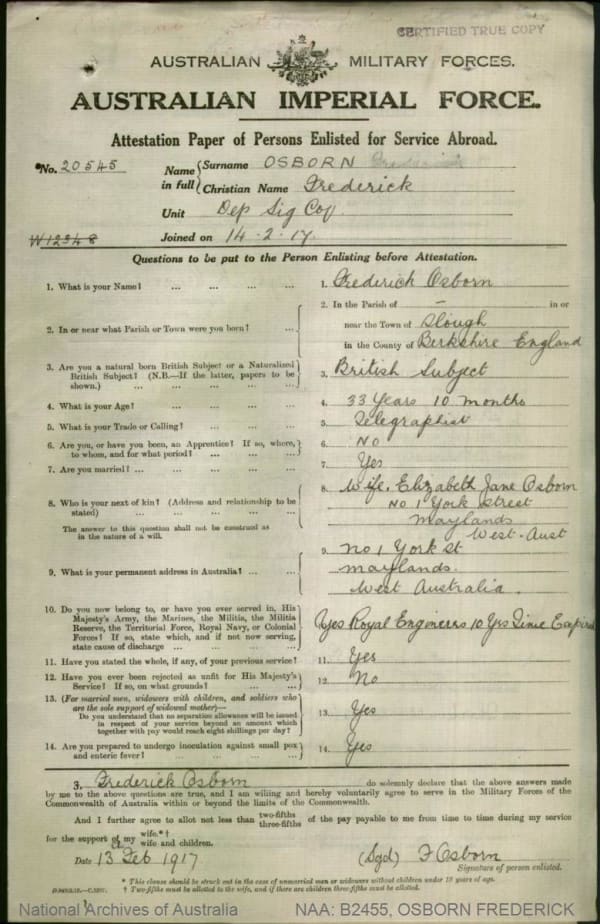 CERTIFIED TRUE COPY
AUSTRALIAN MILITARY FORCES.
AUSTRALIAN IMPERIAL FORCE.
Attestation Paper of Persons Enlisted for Service Abroad.
No. 20545
Name in full { Surname OSBORN
Christian Name Frederick
Unit Dep Sig Coy
W12348
Joined on 14-2-17.
Questions to be put to the Person Enlisting before Attestation.
1. What is your Name? ... ... ... ...
1. Frederick Osborn
2. In or near what Parish or Town were you born? ...
2. In the Parish of – in or
near the Town of Slough
in the County of Berkshire England
3. Are you a natural born British Subject or a Naturalized
British Subject? (N.B.—If the latter, papers to be
shown.) ... ... ... ...
3. British Subject
4. What is your Age? ... ... ... ...
4. 33 Years 10 months
5. What is your Trade or Calling? ... ... ...
5. Telegraphist
6. Are you, or have you been, an Apprentice? If so, where,
to whom, and for what period? ... ... ...
6. No
7. Are you married? ... ... ... ...
7. Yes
8. Who is your next of kin? (Address and relationship to be
stated) ... ... ... ...
The answer to this question shall not be construed as
in the nature of a will.
8. Wife, Elizabeth Jane Osborn
No 1 York Street
Maylands
West. Aust
9. What is your permanent address in Australia? ... ...
9. No 1 York St
Maylands.
West Australia.
10. Do you now belong to, or have you ever served in, His
Majesty's Army, the Marines, the Militia, the Militia
Reserve, the Territorial Force, Royal Navy, or Colonial
Forces? If so, state which, and if not now serving,
state cause of discharge ... ... ...
Yes Royal Engineers 10 Yrs Time Expired
11. Have you stated the whole, if any, of your previous service?
11. Yes
12. Have you ever been rejected as unfit for His Majesty's
Service? If so, on what grounds? ... ...
12. No
13. (For married men, widowers with children, and soldiers who
are the sole support of widowed mother)—
Do you understand that no separation allowance will be issued
in respect of your service beyond an amount which
together with pay would reach eight shillings per day?
13. Yes
14. Are you prepared to undergo inoculation against small pox
and enteric fever? ... ... ... ...
14. Yes
3, Frederick Osborn do solemnly declare that the above answers made
by me to the above questions are true, and I am willing and hereby voluntarily agree to serve in the Military Forces of the
Commonwealth of Australia within or beyond the limits of the Commonwealth.
And I further agree to allot not less than two-fifths three-fifths of the pay payable to me from time to time during my service
for the support of my wife.*†
wife and children.
Date 13 Feb 1917
(Sgd) F Osborn
Signature of person enlisted.
* This clause should be struck out in the case of unmarried men or widowers without children under 18 years of age.
† Two-fifths must be allotted to the wife, and if there are children three-fifths must be allotted.
National Archives of Australia
NAA: B2455, OSBORN FREDERICK